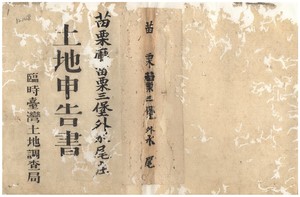 苗栗苗栗三堡外水尾
苗栗廳苗栗三堡外水尾庄
土地申告書
臨時臺灣土地調查局